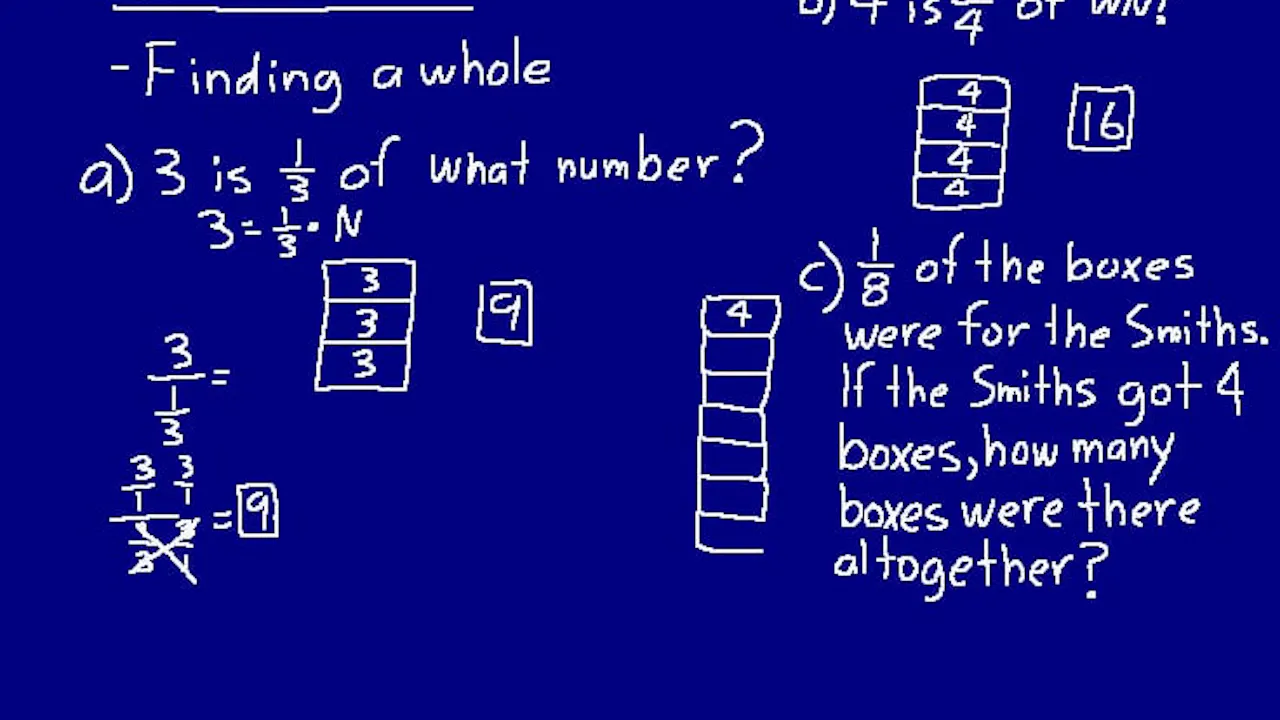 - Finding a whole
a) 3 is 1/3 of what number?
3 = 1/3 • N
3
3
3
9
3/(1/3) =
3/1 3/1
1/3 3/1
= 9
b) 4 is 1/4 of WN?
4
4
4
4
16
c) 1/8 of the boxes
were for the Smiths.
If the Smiths got 4
boxes, how many
boxes were there
altogether?
4